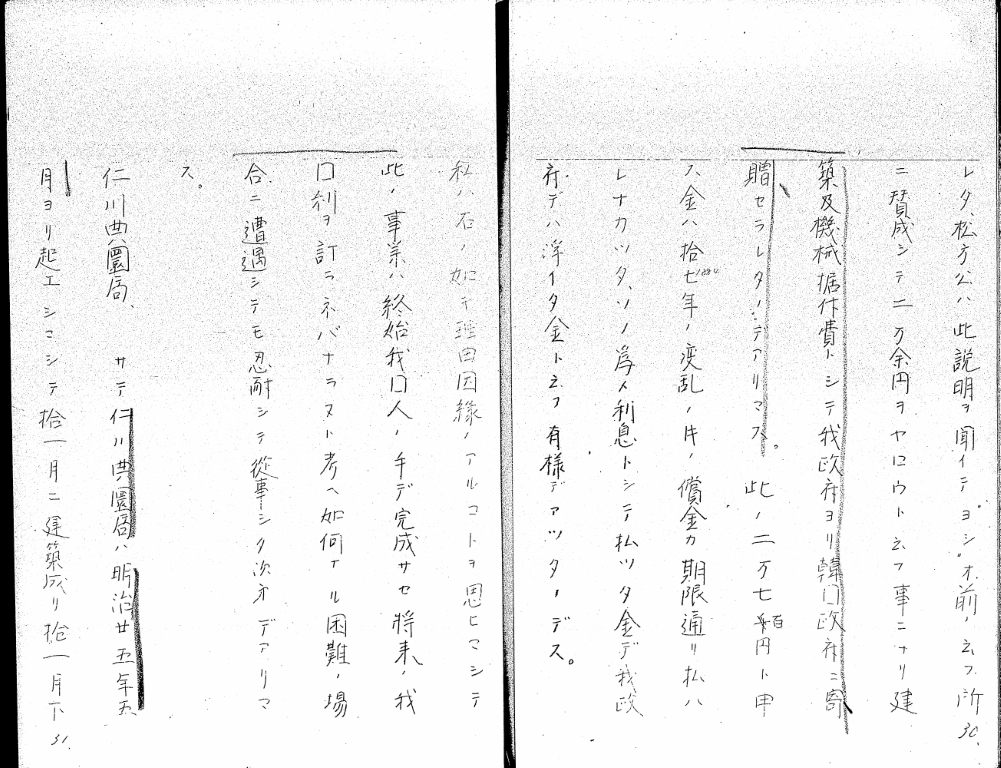 レタ、松方公ハ此説明ヲ聞イテヨシオ前ノ云フ所
ニ賛成シテ二万余円ヲヤロウト云フ事ニナリ建
築及機械据付費トシテ我政府ヨリ韓口政府ニ寄
贈セラレタノデアリマス。此ノ二万七千百円ト申
ス金ハ拾七年ノ変乱ノ片ノ償金カ期限通リ払ハ
1884
レナカツタ、ソノ為メ利息トシテ払ツタ金デ我政
府デハ浮イタ金ト云フ有様デアツタノデス。
30.
私ハ右ノ如キ理由因縁ノアルコトヲ思ヒマシテ
此ノ事業ハ終始我口人ノ手デ完成サセ将来ノ我
口利ヲ計ラネバナラヌト考ヘ如何ナル困難ノ場
合ニ遭遇シテモ忍耐シテ從事シタ次オデアリマ
ス。
仁川典圜局、サテ仁川典圜局ハ明治廿五年五
月ヨリ起エシマシテ拾一月ニ建築成リ拾一月下
31.